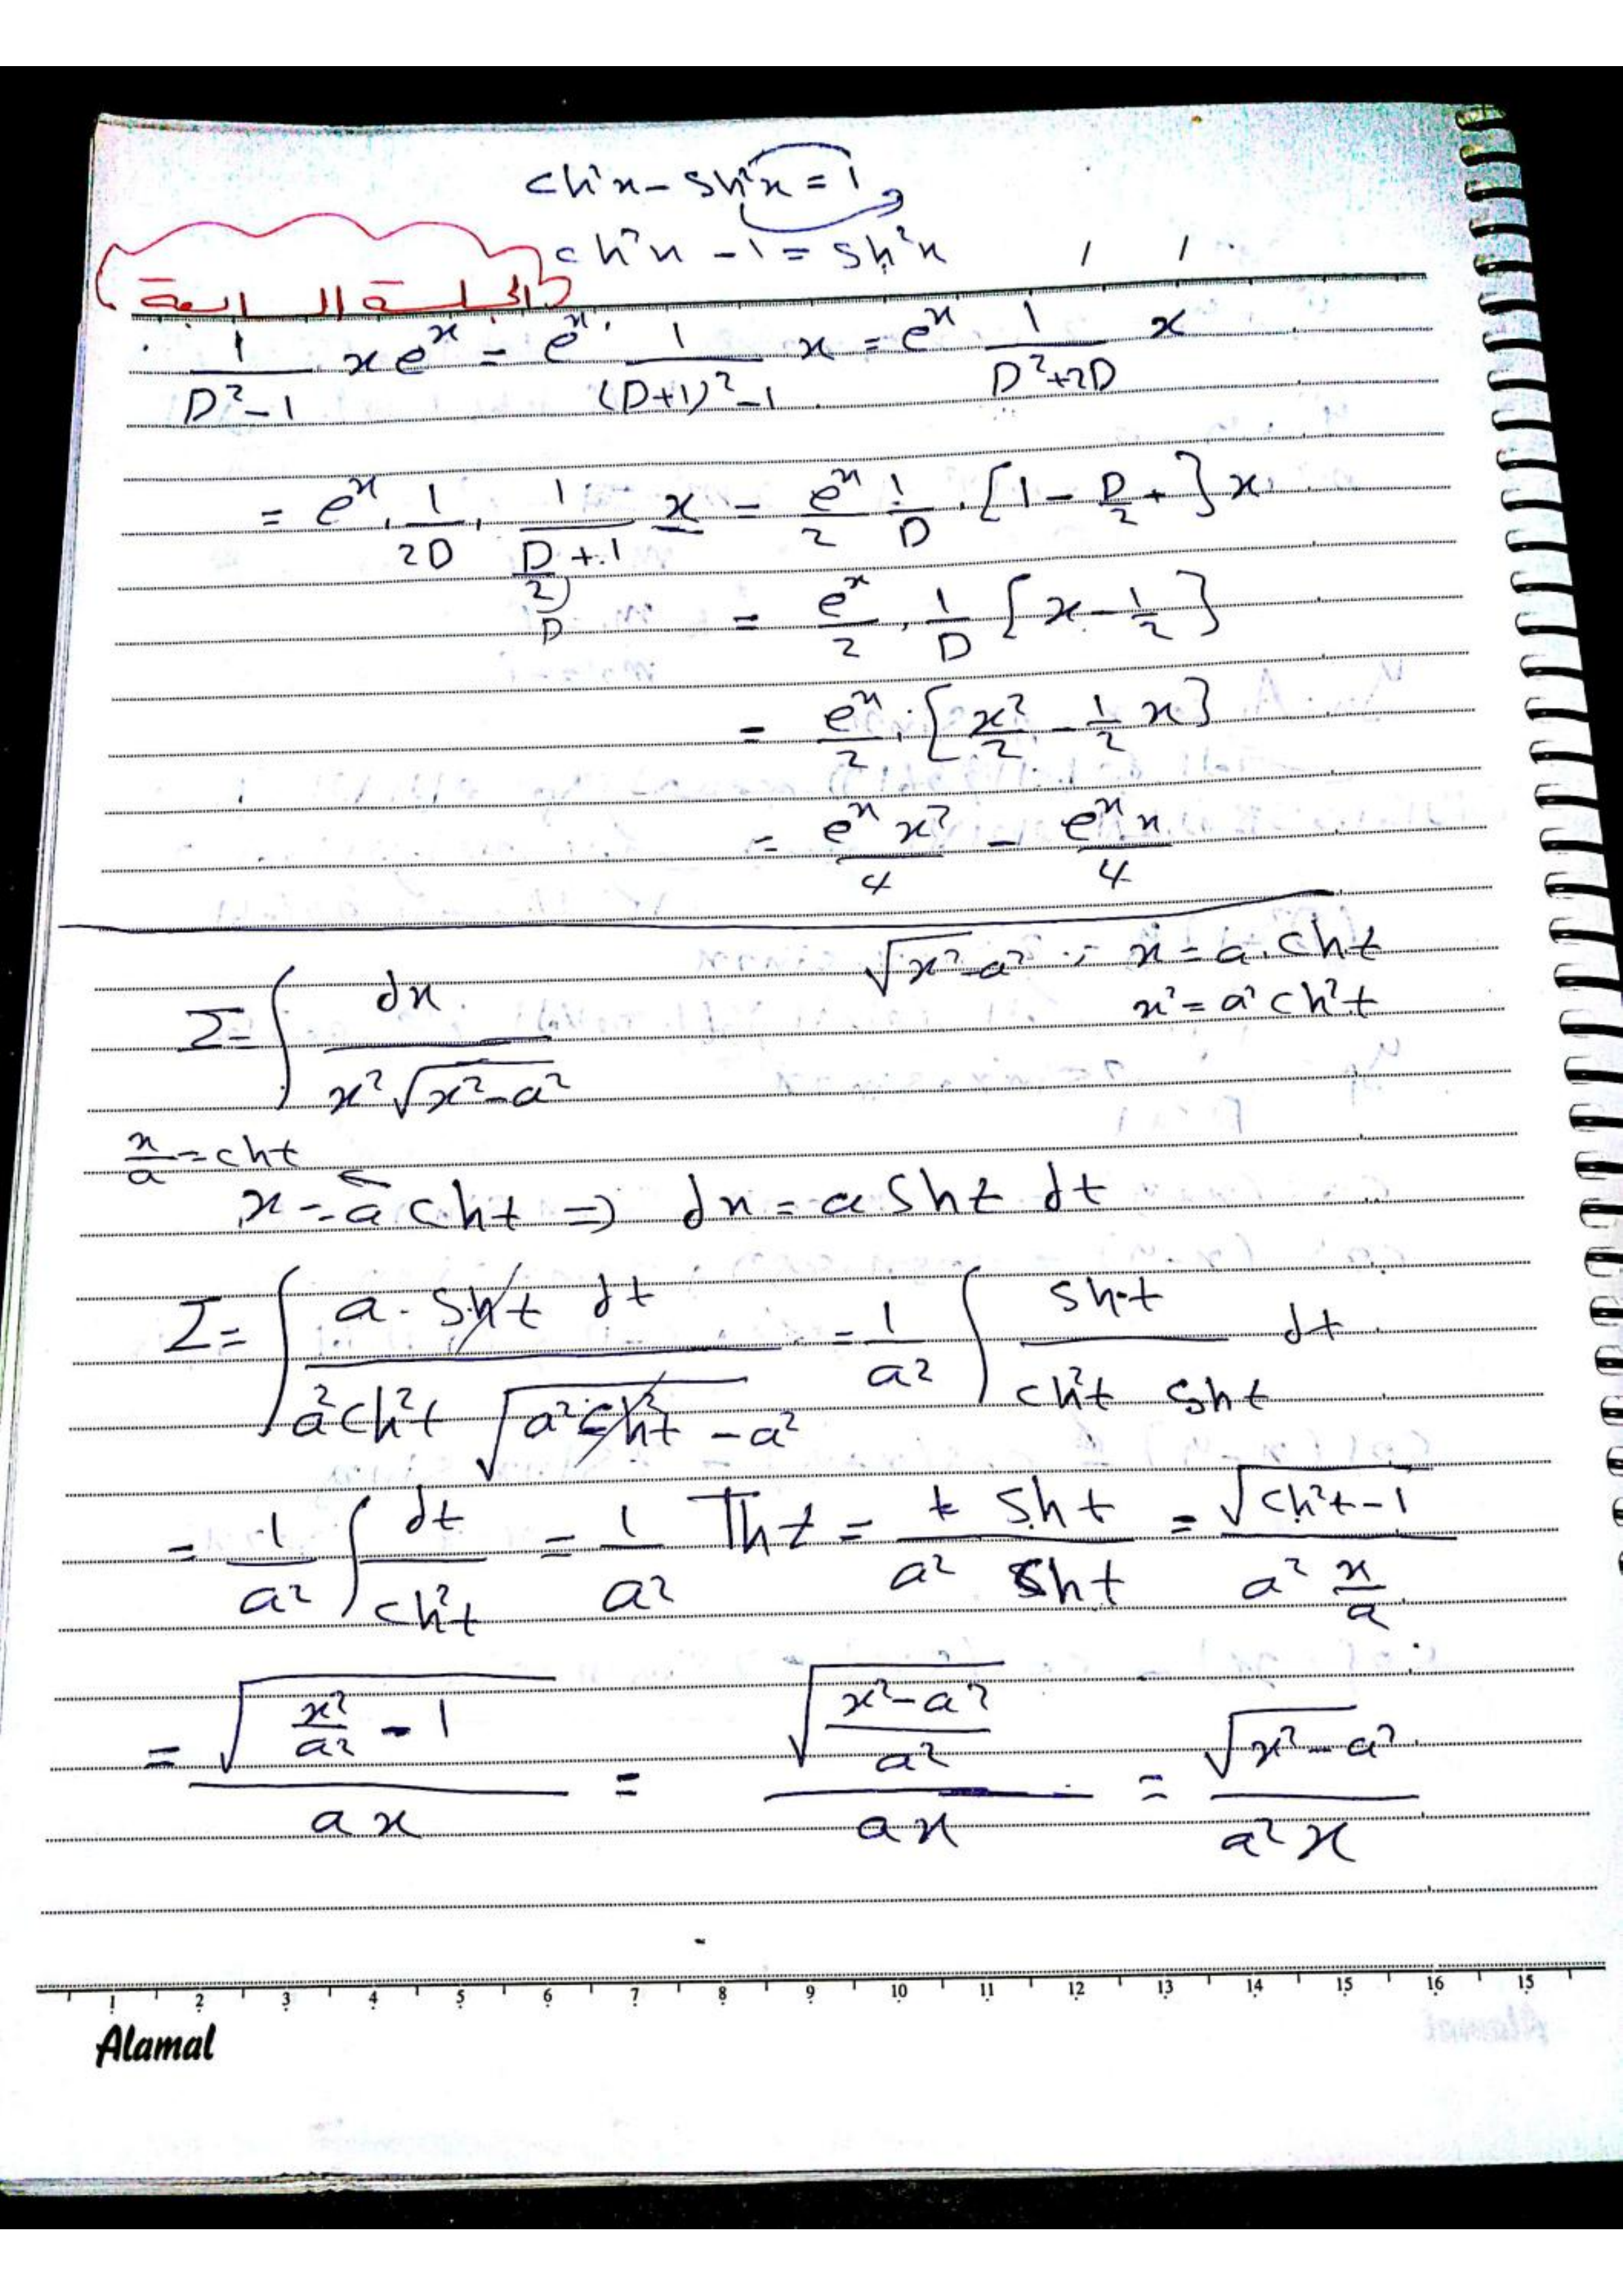 ch²x - sh²x = 1
ch²x - 1 = sh²x
الجلسة السابعة
1/(D²-1) x eˣ = eˣ · 1/((D+1)²-1) x = eˣ 1/(D²+2D) x
= eˣ · 1/2D · 1/(D/2 + 1) x = eˣ/2 · 1/D · [1 - D/2 + ] x
= eˣ/2 · 1/D [x - 1/2]
= eˣ/2 · [x²/2 - 1/2 x]
= eˣ x²/4 - eˣ x/4
√(x²-a²) ; x = a · ch t
x² = a² ch² t
I = ∫ dx / (x² √(x²-a²))
x/a = ch t
x = a ch t ⇒ dx = a sh t dt
I = ∫ a · sh t dt / (a² ch² t √(a² ch² t - a²)) = 1/a² ∫ sh t / (ch² t sh t) dt
= 1/a² ∫ dt / ch² t = 1/a² Th t = sh t / (a² sh t) = √(ch² t - 1) / (a² x/a)
= √(x²/a² - 1) / ax = √((x²-a²)/a²) / ax = √(x²-a²) / a²x
1 2 3 4 5 6 7 8 9 10 11 12 13 14 15 16 15
Alamal